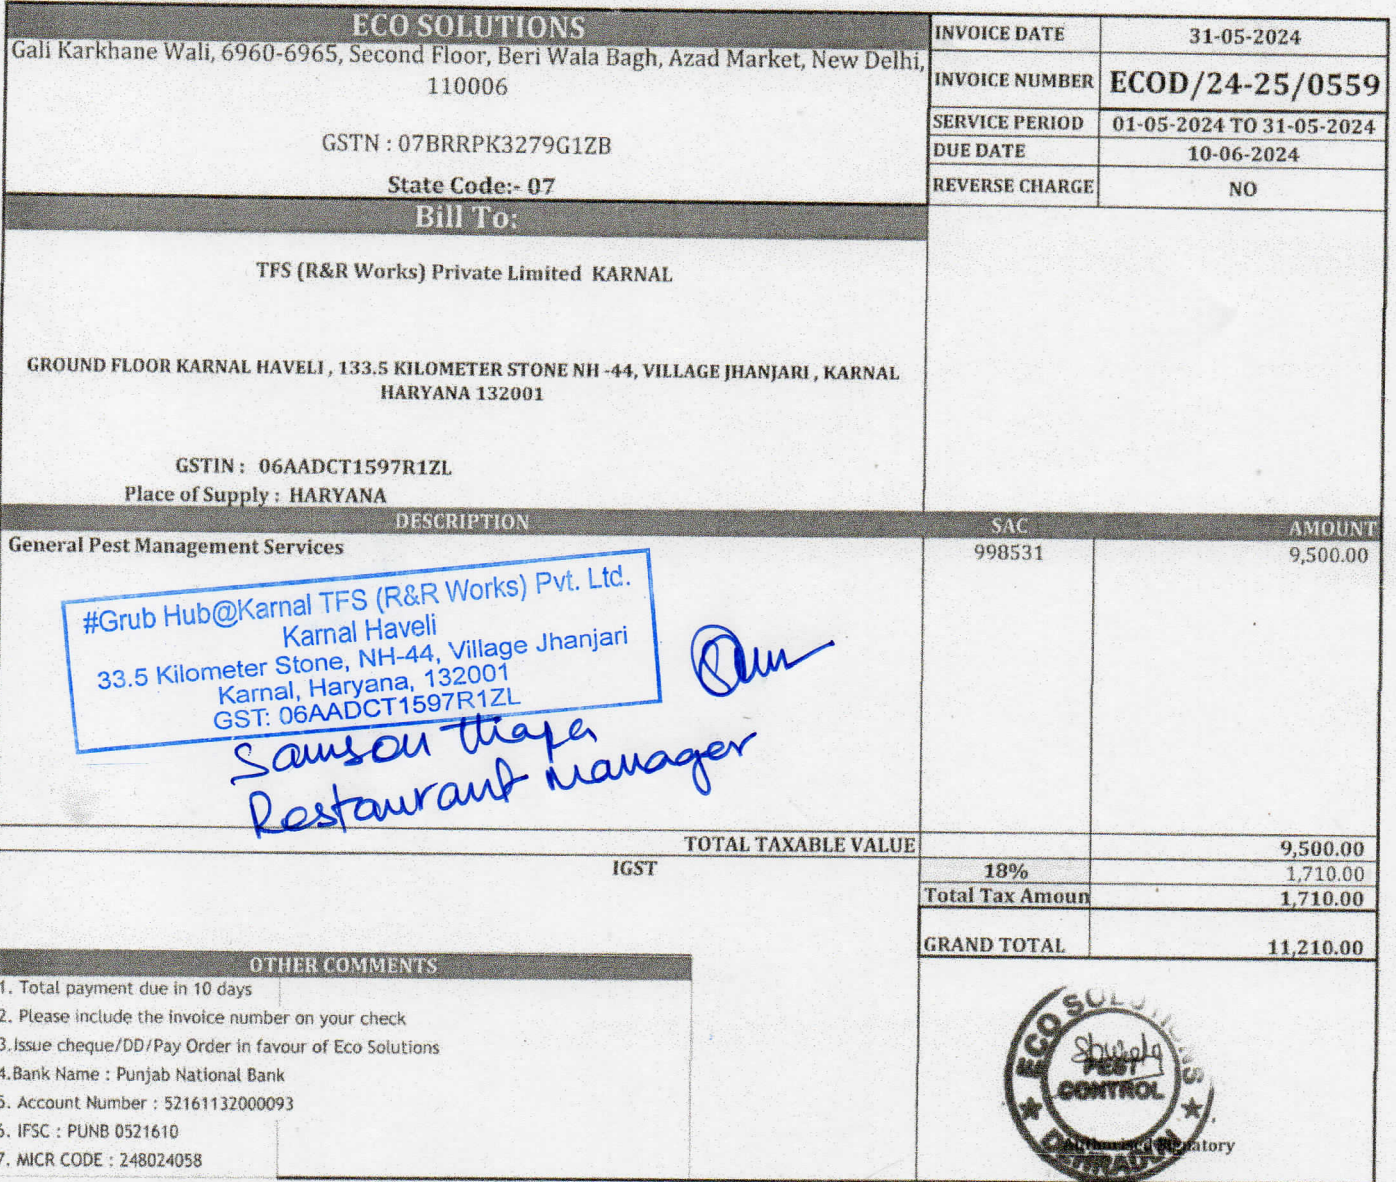 ECO SOLUTIONS
Gali Karkhane Wali, 6960-6965, Second Floor, Beri Wala Bagh, Azad Market, New Delhi,
110006
GSTN : 07BRRPK3279G1ZB
State Code:- 07
INVOICE DATE 31-05-2024
INVOICE NUMBER ECOD/24-25/0559
SERVICE PERIOD 01-05-2024 TO 31-05-2024
DUE DATE 10-06-2024
REVERSE CHARGE NO
Bill To:
TFS (R&R Works) Private Limited KARNAL
GROUND FLOOR KARNAL HAVELI , 133.5 KILOMETER STONE NH -44, VILLAGE JHANJARI , KARNAL
HARYANA 132001
GSTIN : 06AADCT1597R1ZL
Place of Supply : HARYANA
DESCRIPTION SAC AMOUNT
General Pest Management Services 998531 9,500.00
#Grub Hub@Karnal TFS (R&R Works) Pvt. Ltd.
Karnal Haveli
33.5 Kilometer Stone, NH-44, Village Jhanjari
Karnal, Haryana, 132001
GST: 06AADCT1597R1ZL
Samson Thapa
Restaurant Manager
TOTAL TAXABLE VALUE 9,500.00
IGST 18% 1,710.00
Total Tax Amoun 1,710.00
GRAND TOTAL 11,210.00
OTHER COMMENTS
1. Total payment due in 10 days
2. Please include the invoice number on your check
3.Issue cheque/DD/Pay Order in favour of Eco Solutions
4.Bank Name : Punjab National Bank
5. Account Number : 52161132000093
6. IFSC : PUNB 0521610
7. MICR CODE : 248024058
ECO SOLUTIONS
PEST
CONTROL
DEHRADUN
Authorised Signatory